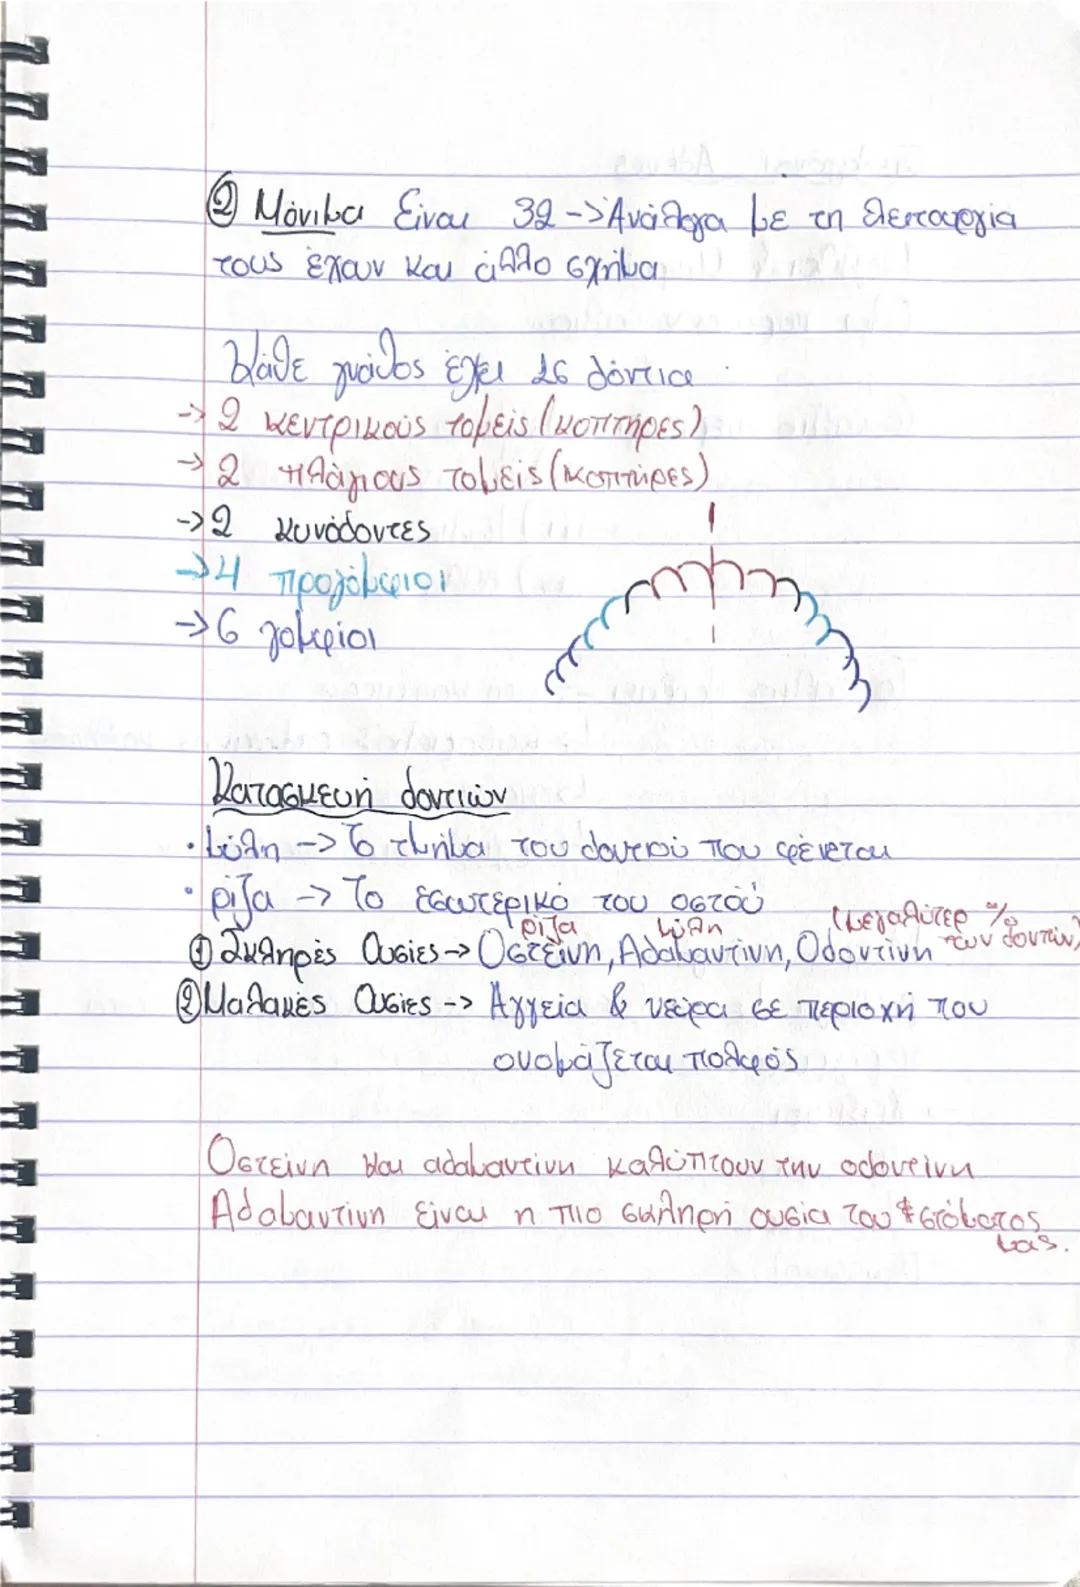 ② Μόνιμα Είναι 32 -> Ανάλογα με τη λειτουργία
τους έχουν και άλλο σχήμα
Κάθε γνάθος έχει 16 δόντια
-> 2 κεντρικούς τομείς (κοπτήρες)
-> 2 πλάγιους τομείς (κοπτήρες)
-> 2 κυνόδοντες
-> 4 προγόμφιοι
-> 6 γομφίοι
Κατασκευή δοντιών
• μύλη -> Το τμήμα του δοντιού που φένεται
• ρίζα -> Το εσωτερικό του οστού
ρίζα μύλη (μεγαλύτερ % των δοντιών)
① Σκληρές Ουσίες -> Οστεϊνη, Αδαμαντινη, Οδοντινη
② Μαλακές Ουσίες -> Αγγεία & νεύρα σε περιοχή που
ονομάζεται πολφός
Οστεινη και αδαμαντινη καλύπτουν την οδοντινη
Αδαμαντινη είναι η πιο σκληρή ουσία του στόματος
μας.